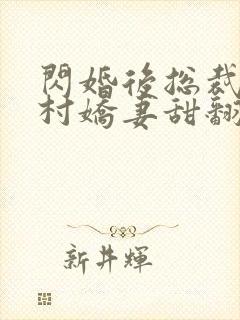 閃婚後总裁
村嬌妻甜翻
新井輝